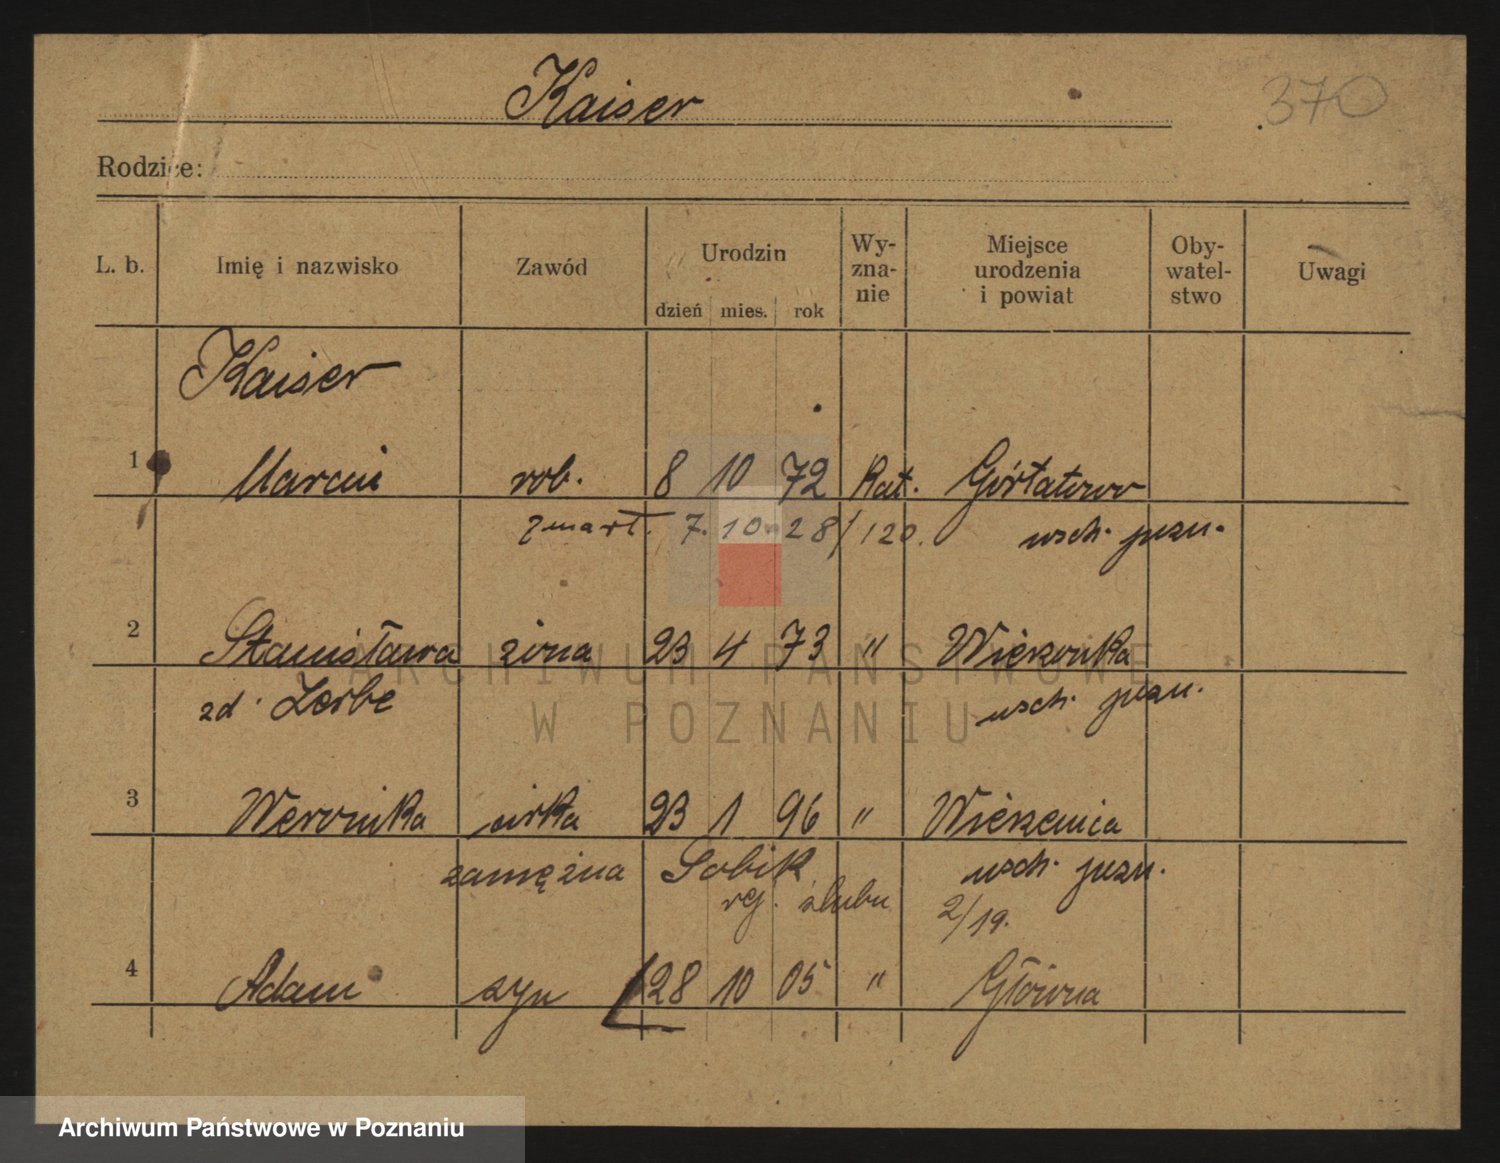 Kaiser
370
Rodzice:
L. b. Imię i nazwisko Zawód Urodzin dzień mies. rok Wy-zna-nie Miejsce urodzenia i powiat Oby-watel-stwo Uwagi
Kaiser
1 Marcin rob. 8 10 72 kat. Górtatowo
zmarł. 7. 10. 28/120. wsch. pozn.
2 Stanisława żona 23 4 73 " Wierzonka
zd. Zerbe wsch. pozn.
3 Weronika córka 23 1 96 " Wierzenica
zamężna Sobik wsch. pozn.
rej. ślubu 2/19.
4 Adam syn 28 10 05 " Główna
ARCHIWUM PAŃSTWOWE
W POZNANIU
Archiwum Państwowe w Poznaniu